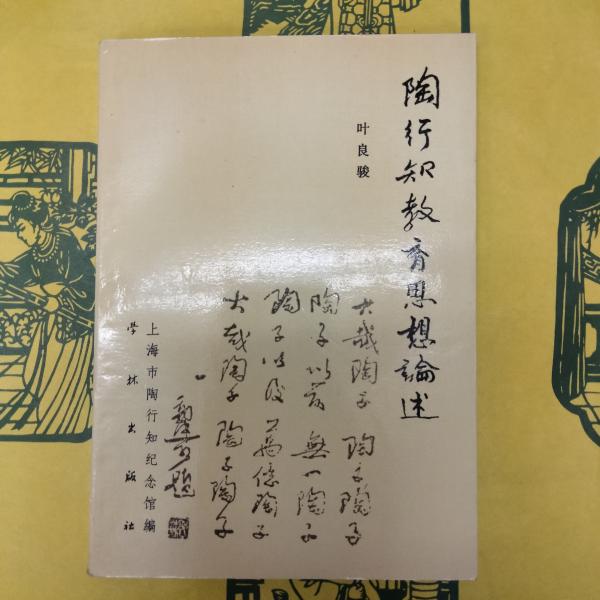 陶行知教育思想論述
叶良骏
大哉陶子 陶子陶子
陶子以前 無一陶子
陶子以后 万億陶子
大哉陶子 陶子陶子
上海市陶行知纪念馆编
学林出版社